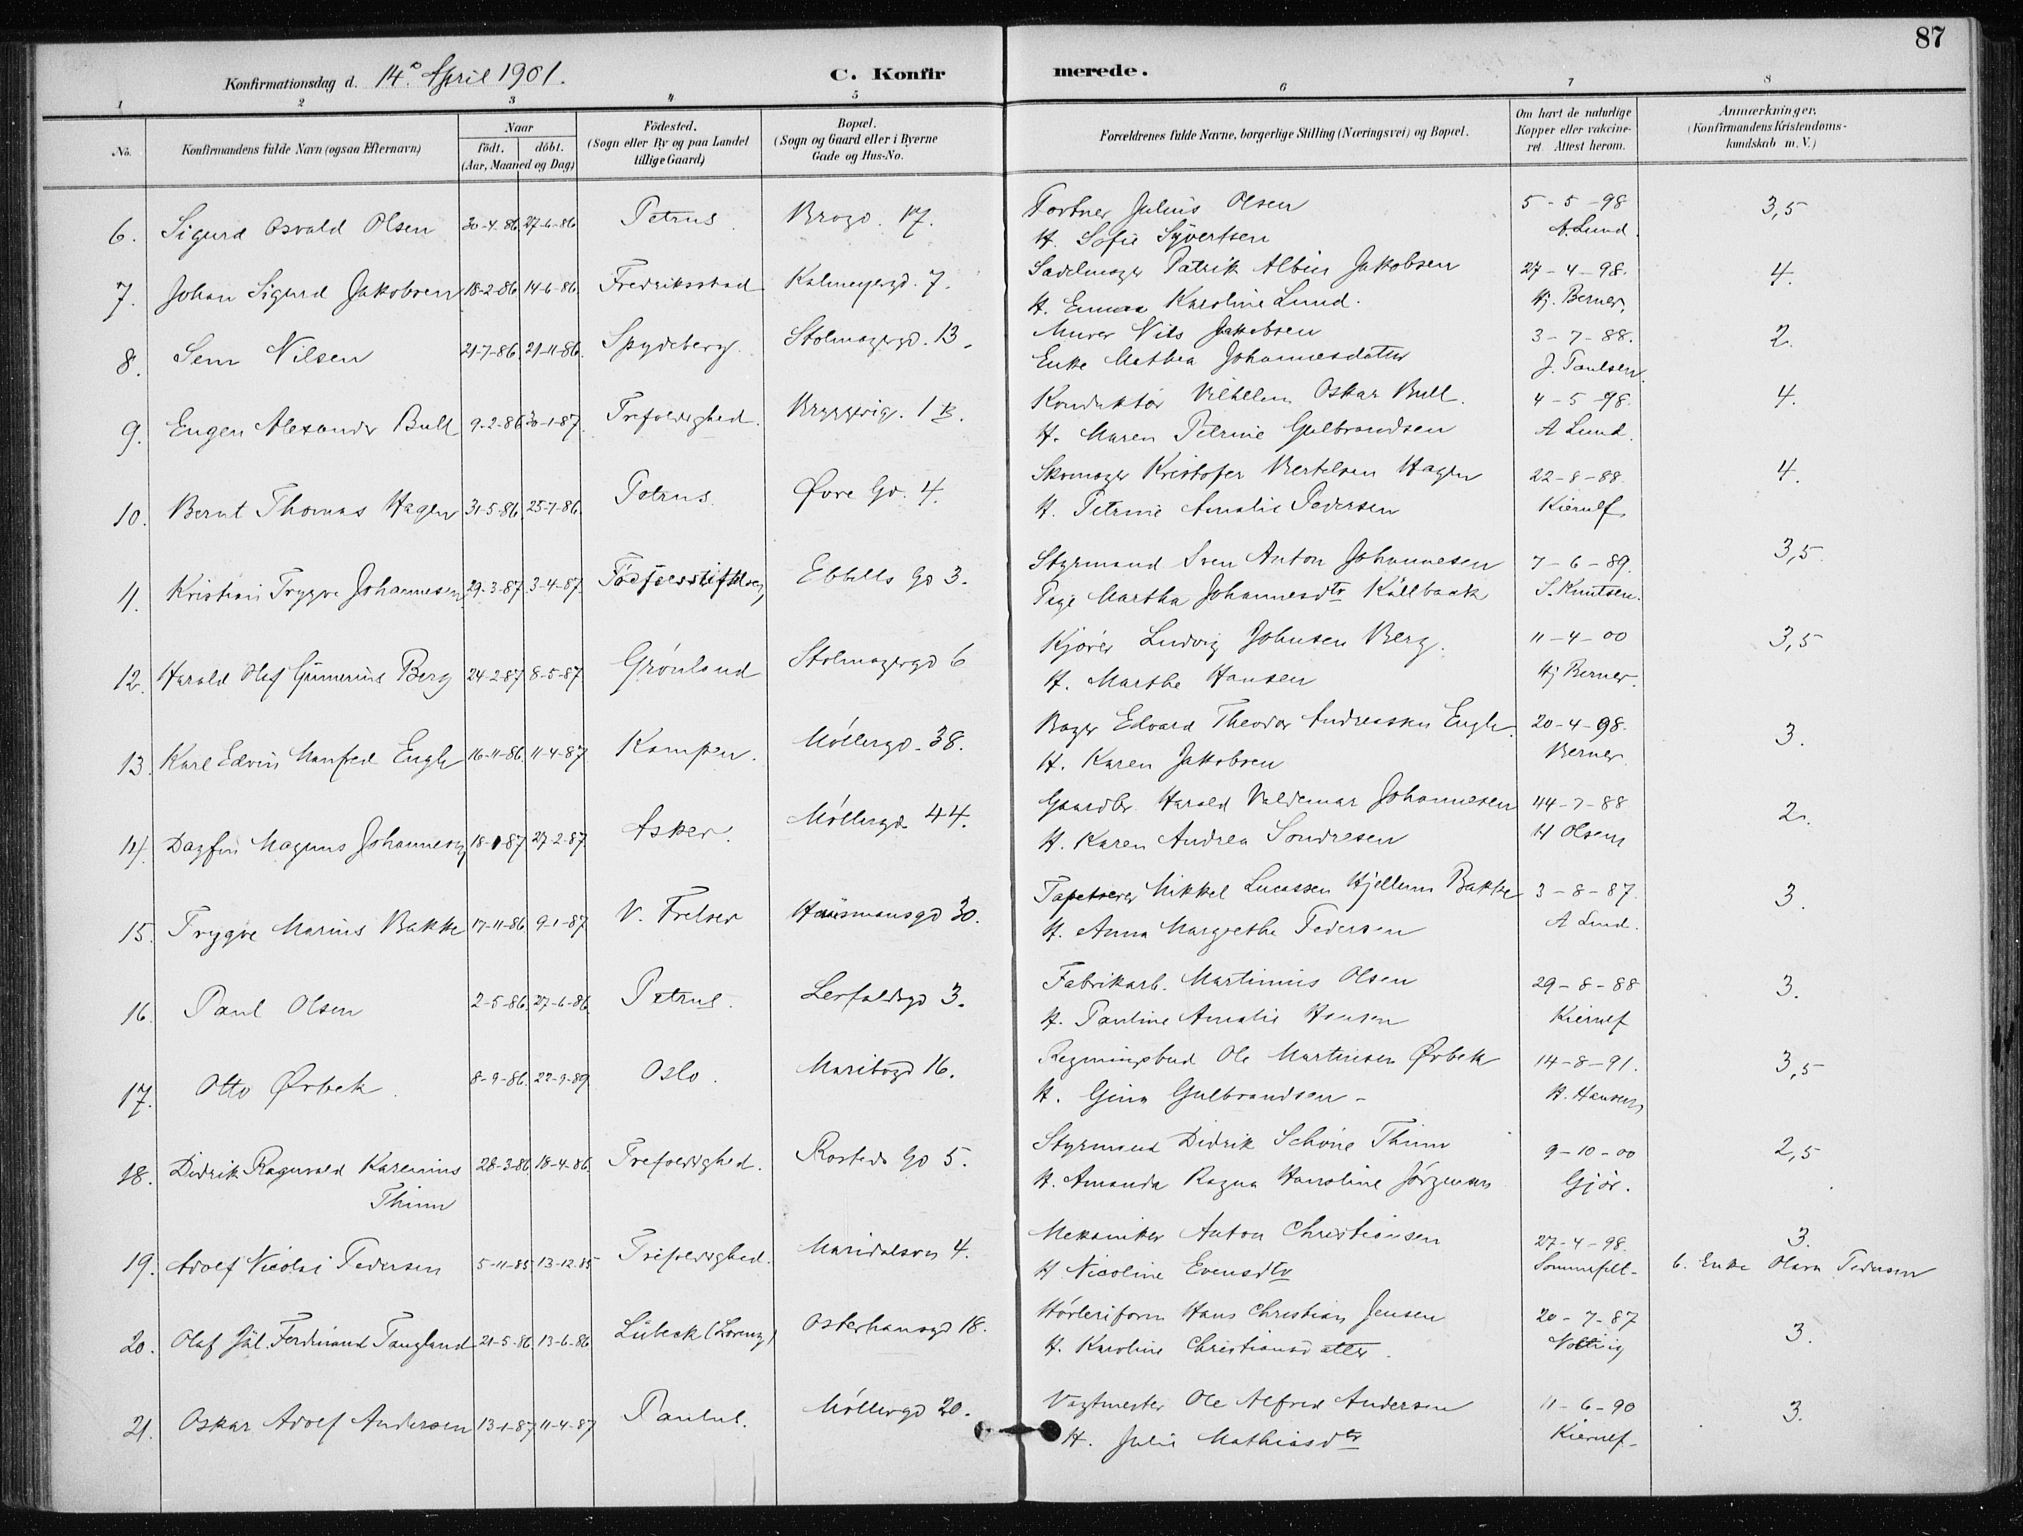 87
Konfirmationsdag d. 14de April 1901.
C. Konfirmerede.
1 2 3 4 5 6 7 8
No.
Konfirmandens fulde Navn (ogsaa Efternavn)
Naar
födt. döbt.
(Aar, Maaned og Dag)
Födested.
(Sogn eller By og paa Landet
tillige Gaard)
Bopæl.
(Sogn og Gaard eller i Byerne
Gade og Hus-No.
Forældrenes fulde Navne, borgerlige Stilling (Næringsvei) og Bopæl.
Om havt de naturlige
Kopper eller vakcine-
ret. Attest herom.
Anmærkninger.
(Konfirmandens Kristendoms-
kundskab m. V.)
6. Sigurd Osvald Olsen 30-4-86. 27-6-86 Petrus. Brogd. 17. Portner Julius Olsen 5-5-98 3,5
H. Sofie Syvertsen A. Lund.
7. Johan Sigurd Jakobsen 18-2-86. 14-6-86. Fredriksstad Kalmeyergd. 7. Sadelmager Patrik Albin Jakobsen 27-4-98. 4.
H. Emma Karoline Lund. Hj. Berner.
8. Sem Nilsen 21-7-86. 21-11-86. Spydeberg. Stolmagergd. 13. Murer Nils Jakobsen 3-7-88. 2.
Enke Mathea Johannesdatter J. Paulsen.
9. Eugen Alexander Bull 9-2-86 30-1-87. Trefoldighed. Bryggerig. 1 B. Konduktör Vilhelm Oskar Bull. 4-5-98. 4.
H. Maren Petrine Gulbrandsen A Lund.
10. Bernt Thomas Hagen 31-5-86. 25-7-86. Petrus. Øvre Gd. 4. Skomager Kristofer Bertelsen Hagen 22-8-88. 4.
H. Petrine Amalie Pedersen Kierulf
11. Kristian Trygve Johannesen 29-3-87. 3-4-87. Födselsstiftelsen Ebbells Gd 3. Styrmand Sven Anton Johannesen 7-6-89. 3,5
Pige Martha Johannesdtr Källbaak S. Knutsen.
12. Harald Olaf Gunerius Berg 24-2-87 8-5-87. Grønland Stolmagergd 6 Kjører Ludvig Johnsen Berg. 11-4-00 3,5
H. Marthe Hansen Hj Berner.
13. Karl Edvin Manfred Engh 16-11-86. 11-4-87 Kampen. Møllergd. 38. Bager Edvard Theodor Andreassen Engh. 20-4-98. 3.
H. Karen Jakobsen Berner.
14. Dagfin Magnus Johannesen 18-1-87 27-2-87. Asker. Møllergd. 44. Gaardbr. Harald Valdemar Johannesen 14-7-88 2.
H. Karen Andrea Sondresen H Olsen
15. Trygve Marius Bakke 17-11-86. 9-1-87 V. Frelser Hausmansgd 30. Tapetserer Mikkel Lucassen Hjellum Bakke 3-8-87. 3.
H. Anna Margrethe Pedersen A Lund.
16. Paul Olsen 2-5-86. 27-6-86. Petrus. Lerfaldsgd 3. Fabrikarb. Martinius Olsen 29-8-88 3.
H. Pauline Amalie Hansen Kierulf
17. Otto Ørbek. 8-9-86. 22-9-89 Oslo. Maribogd 16. Regningsbud Ole Martinsen Ørbek 14-8-91. 3,5
H. Gina Gulbrandsen - H. Hansen
18. Didrik Ragnvald Karenius 28-3-86 18-4-86. Trefoldighed. Rosteds Gd 5. Styrmand Didrik Schöne Thinn 9-10-00 2,5
Thinn H. Amanda Ragna Hansine Jörgensen Gjør.
19. Adolf Nicolai Pedersen 5-11-85 13-12-85 Trefoldighed. Maridalsvn 4. Mekaniker Anton Christiansen 27-4-98. 3.
H Nicoline Evensdtr Sommerfelt- b. Enke Olava Pedersen
20. Olaf Jul. Ferdinand Tangland 21-5-86. 13-6-86. Lübeck (Lorenz) Osterhausgd 18. Hans Christian Jensen 20-7-87 3.
H. Karoline Christiansdatter.
21. Oskar Adolf Andersen 13-1-87 11-4-87 Paulus. Møllergd 20. Vagtmester Ole Alfred Andersen 11-6-90 3.
H. Julie Mathiasdtr Kierulf-